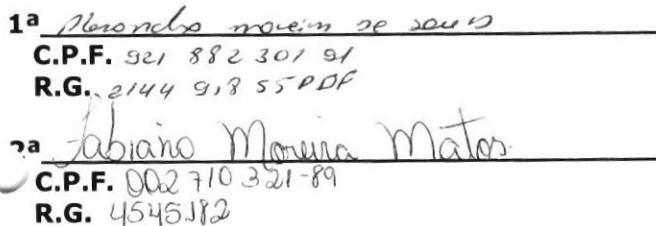 1ª Alexandro moreira de souza
C.P.F. 921 882 301 91
R.G. 2144 918 SSP DF
2ª Fabiano Moreira Matos
C.P.F. 002 710 321-89
R.G. 4545182